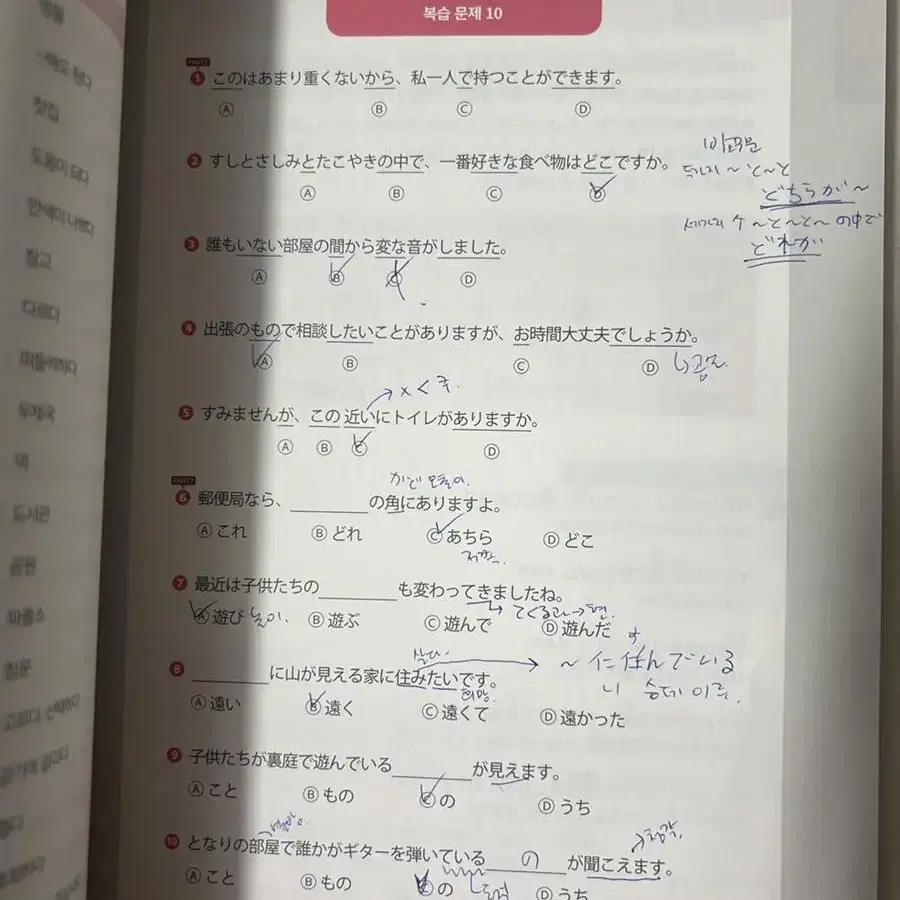 복습 문제 10
PART1
1 このはあまり重くないから、私一人で持つことができます。
Ⓐ Ⓑ Ⓒ Ⓓ
2 すしとさしみとたこやきの中で、一番好きな食べ物はどこですか。
Ⓐ Ⓑ Ⓒ Ⓓ
どちらが～
～と～と～の中で
どれが
3 誰もいない部屋の間から変な音がしました。
Ⓐ Ⓑ Ⓒ Ⓓ
4 出張のもので相談したいことがありますが、お時間大丈夫でしょうか。
Ⓐ Ⓑ Ⓒ Ⓓ
5 すみませんが、この近いにトイレがありますか。
Ⓐ Ⓑ Ⓒ Ⓓ
かど
6 郵便局なら、________の角にありますよ。
Ⓐ これ Ⓑ どれ Ⓒ あちら Ⓓ どこ
7 最近は子供たちの________も変わってきましたね。
Ⓐ 遊び 놀이. Ⓑ 遊ぶ Ⓒ 遊んで Ⓓ 遊んだ
살다.
～に住んでいる
8 ________に山が見える家に住みたいです。
희망
Ⓐ 遠い Ⓑ 遠く Ⓒ 遠くて Ⓓ 遠かった
9 子供たちが裏庭で遊んでいる________が見えます。
Ⓐ こと Ⓑ もの Ⓒ の Ⓓ うち
10 となりの部屋で誰かがギターを弾いている の が聞こえます。
Ⓐ こと Ⓑ もの Ⓒ の Ⓓ うち
맛집
도움이 되다
참고
다르다
우체국
역
도서관
공원